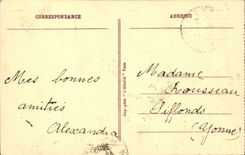 CORRESPONDANCE
ADRESSE
Mes bonnes
amitiés
Alexandra
Madame
Rousseau
Piffonds
(Yonne)